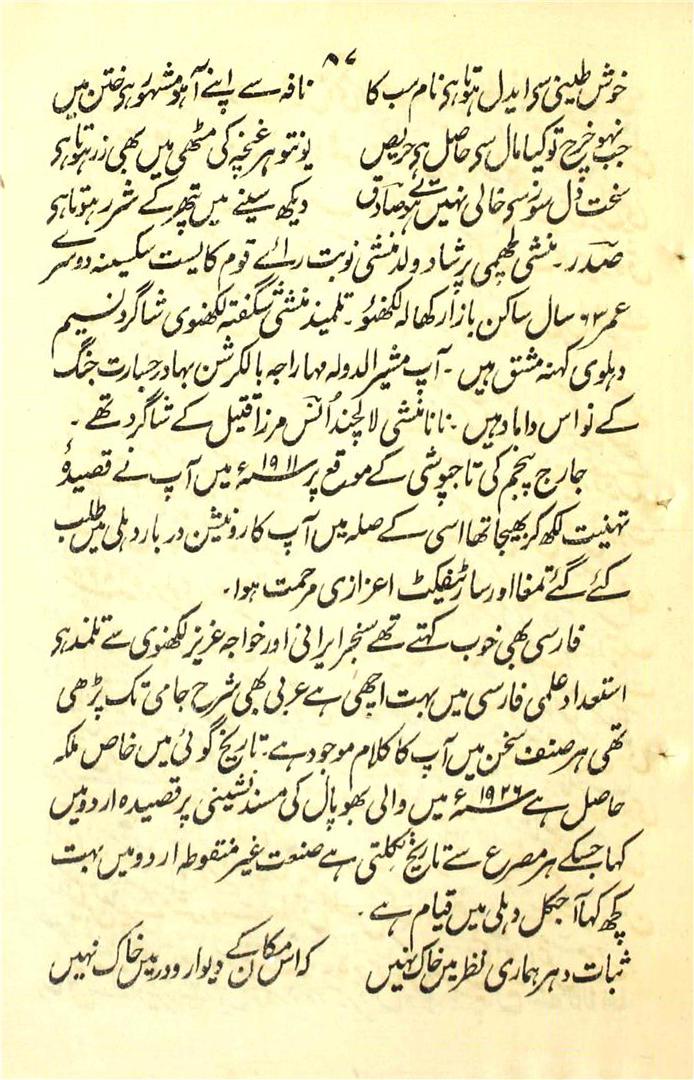 ۹۷
خوش طینتی سی ایدل ہوتا ہی نام سب کا نافہ سے اپنے آہو مشہور ہی ختن میں
جب نہو خرچ تو کیا مال سی حاصل ہی حریص یونتو ہر غنچہ کی مٹھی میں بھی زر ہوتا ہی
سخت دل سوز سی خالی نہیں ہے صادق دیکھ سینے میں پتھر کے شرر ہوتا ہی
صدر۔ منشی لچھمی پرشاد ولد منشی نوبت رائے قوم کایست سکسینہ دوسرے
عمر ۶۳ سال ساکن بازار کھالہ لکھنؤ۔ تلمیذ منشی شگفتہ لکھنوی شاگرد نسیم
دہلوی کہنہ مشق ہیں۔ آپ مشیر الدولہ مہاراجہ بالکرشن بہادر جسارت جنگ
کے نواس داماد ہیں۔ نانا منشی لالچند اُنس مرزا قتیل کے شاگرد تھے۔
جارج پنجم کی تاجپوشی کے موقع پر ۱۹۱۱ء میں آپ نے قصیدۂ
تہنیت لکھ کر بھیجا تھا اسی کے صلہ میں آپ کارونیشن دربار دہلی میں طلب
کئے گئے تمغا اور سارٹیفکٹ اعزازی مرحمت ہوا۔
فارسی بھی خوب کہتے تھے سنجر ایرانی اور خواجہ عزیز لکھنوی سے تلمذ ہی
استعداد علمی فارسی میں بہت اچھی ہے عربی بھی شرح جامی تک پڑھی
تھی ہر صنف سخن میں آپ کا کلام موجود ہے۔ تاریخ گوئی میں خاص ملکہ
حاصل ہے ۱۹۲۶ء میں والی بھوپال کی مسند نشینی پر قصیدہ اردو میں
کہا جسکے ہر مصرع سے تاریخ نکلتی ہے صنعت غیر منقوطہ اردو میں بہت
کچھ کہا آجکل دہلی میں قیام ہے۔
ثبات دہر ہماری نظر میں خاک نہیں کہ اس مکان کے دیوار و در میں خاک نہیں